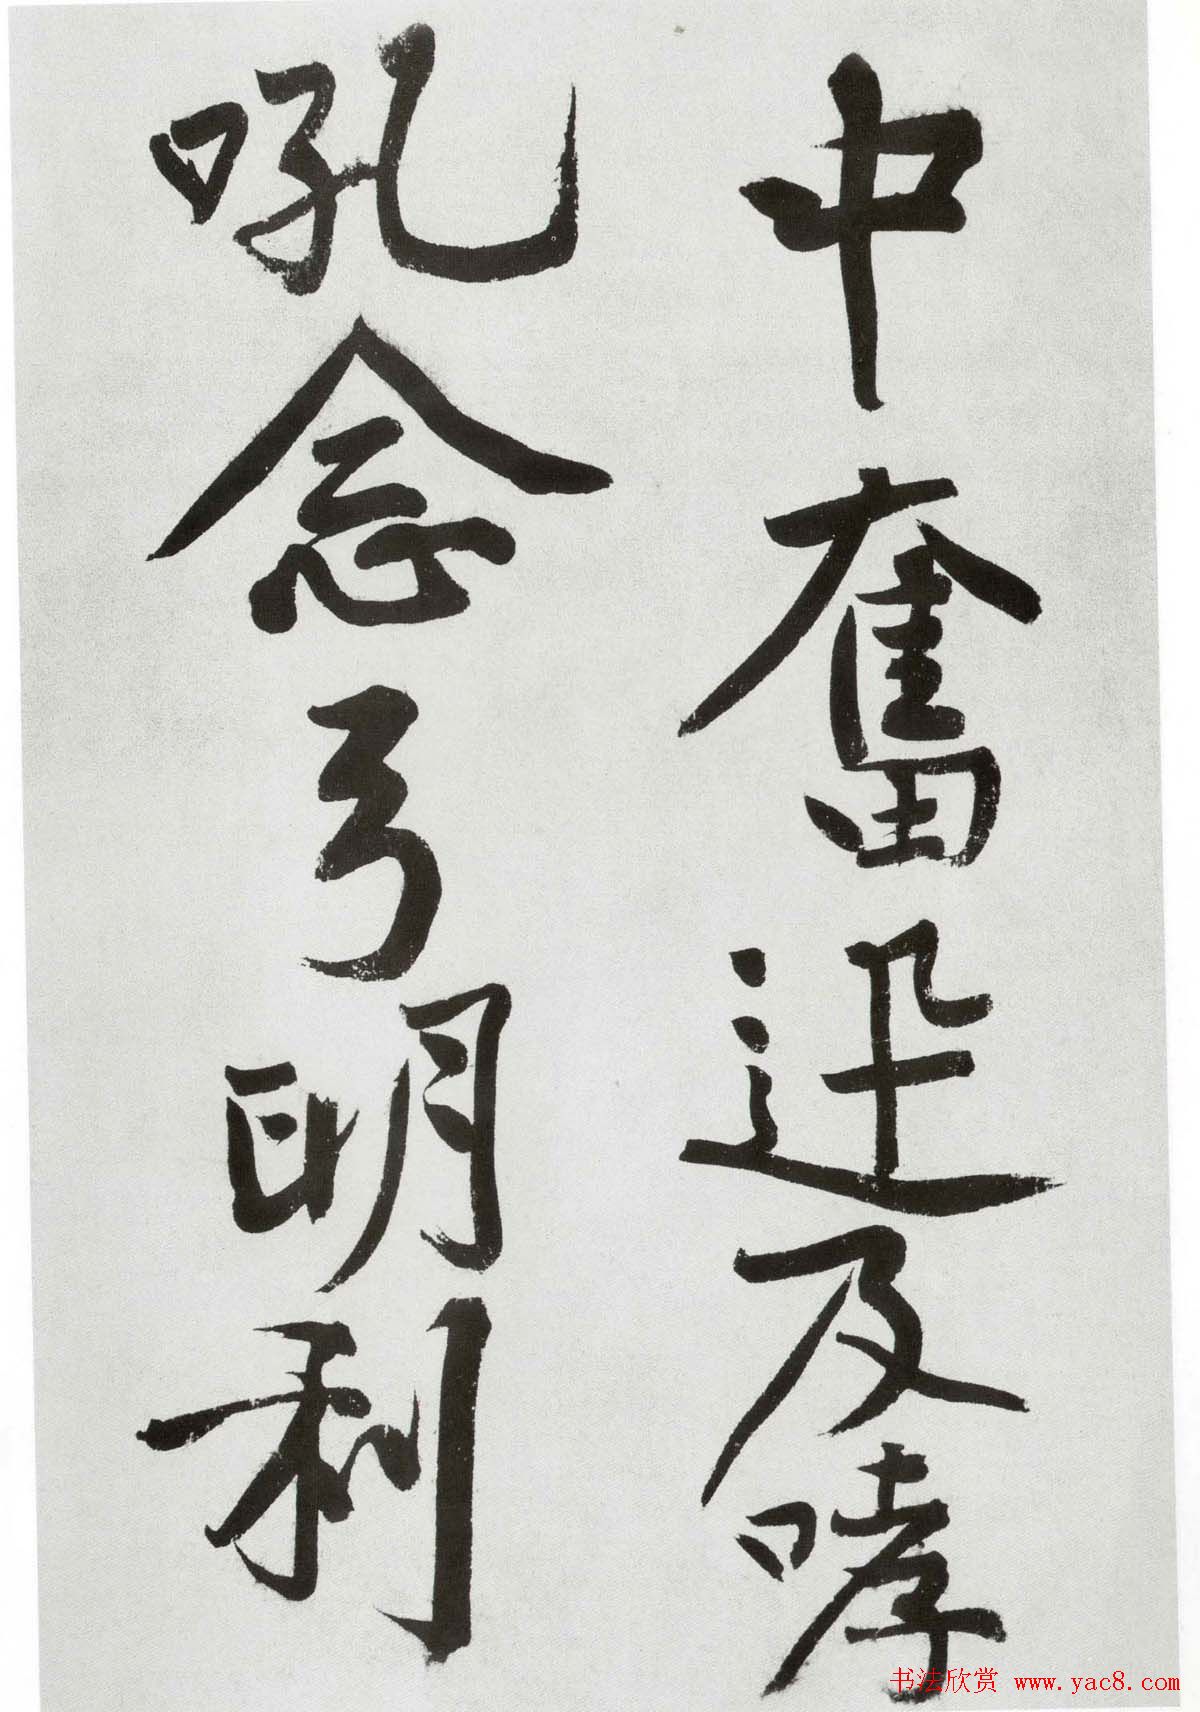 中奮迅及哮
吼念弓明利
书法欣赏 www.yac8.com